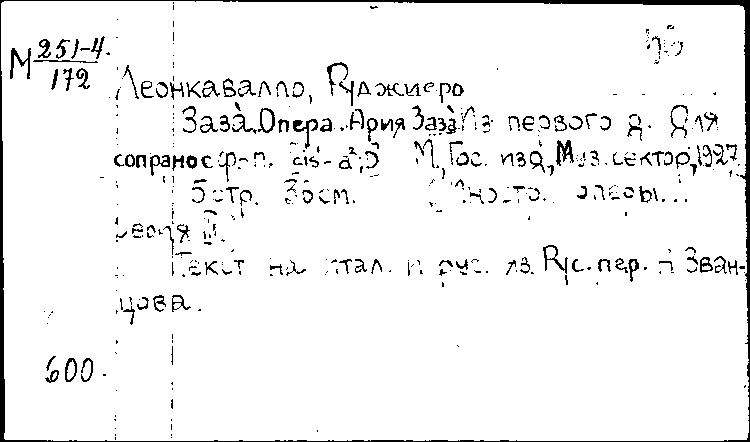 М 251-4.
172
Леонкавалло, Руджиеро
Заза. Опера. Ария Заза Из первого д. Для
сопрано с ф-п. cis'-a²; М., Гос. изд, Муз. сектор, 1927
5 стр. 35см. оперы...
Серия III.
Текст на итал. и рус. яз. Рус. пер. Зван-
цова.
600.